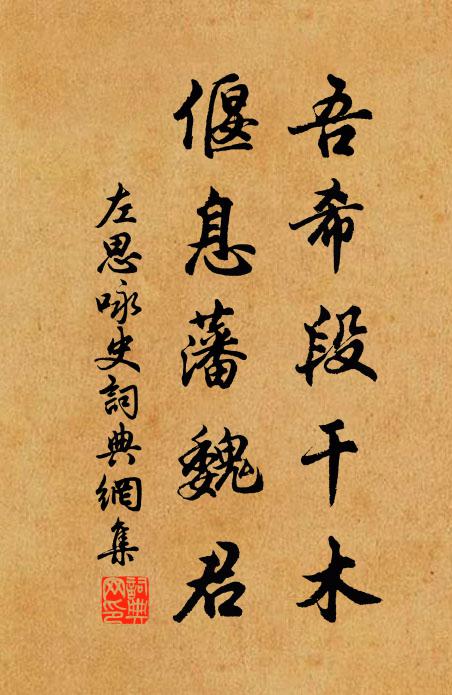 吾希段干木
偃息藩魏君
左思咏史詞典網集
詞典網印